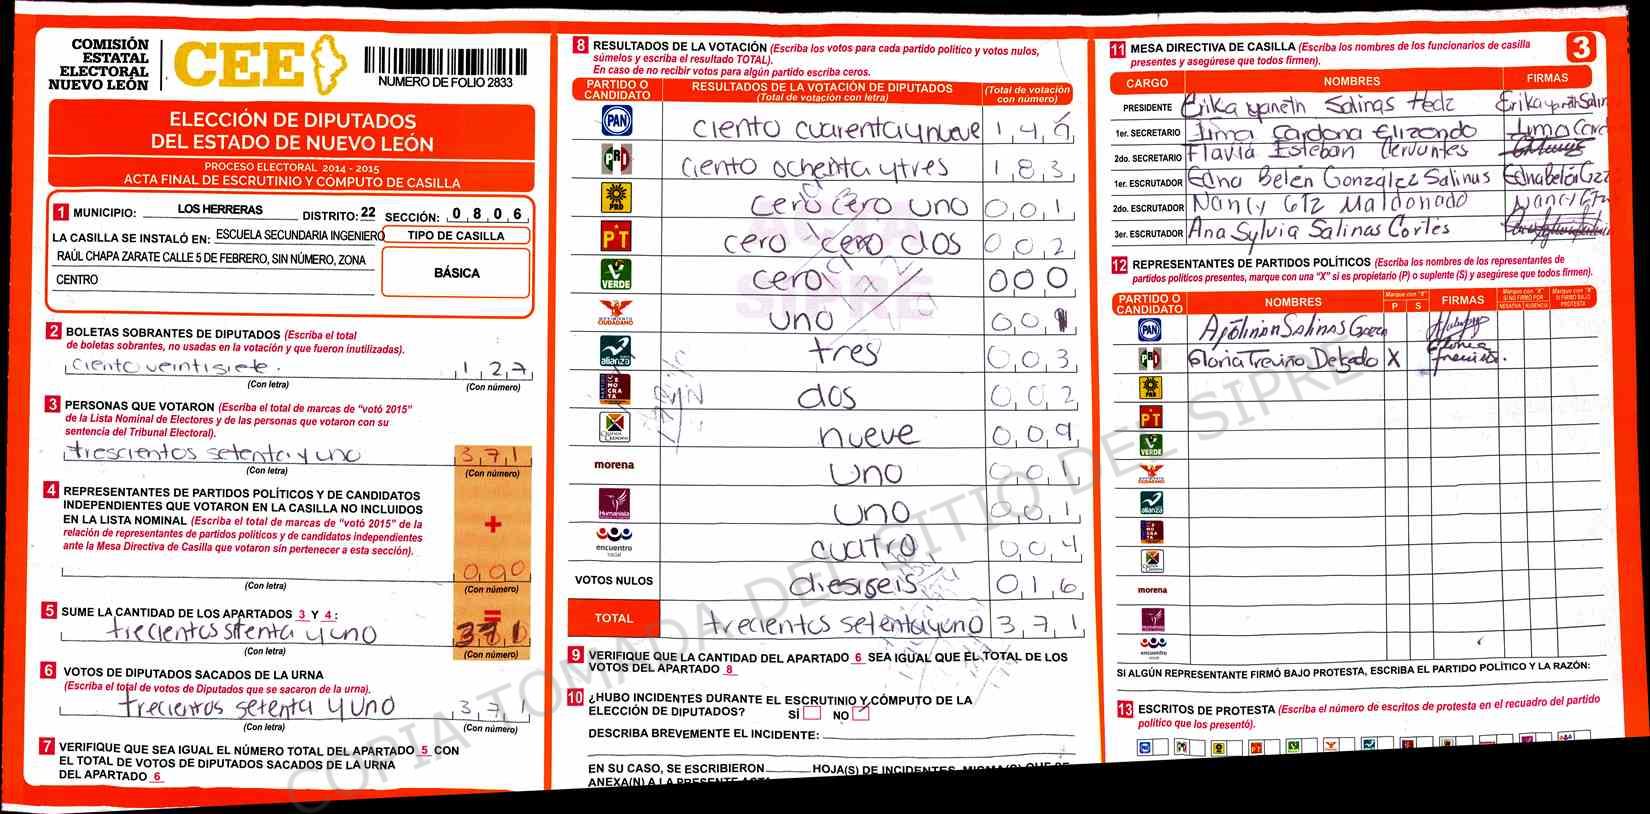 COMISIÓN
ESTATAL
ELECTORAL
NUEVO LEÓN
CEE
NUMERO DE FOLIO 2833
ELECCIÓN DE DIPUTADOS
DEL ESTADO DE NUEVO LEÓN
PROCESO ELECTORAL 2014 - 2015
ACTA FINAL DE ESCRUTINIO Y CÓMPUTO DE CASILLA
1 MUNICIPIO: LOS HERRERAS DISTRITO: 22 SECCIÓN: 0 8 0 6
LA CASILLA SE INSTALÓ EN: ESCUELA SECUNDARIA INGENIERO
RAÚL CHAPA ZARATE CALLE 5 DE FEBRERO, SIN NÚMERO, ZONA
CENTRO
TIPO DE CASILLA
BÁSICA
2 BOLETAS SOBRANTES DE DIPUTADOS (Escriba el total
de boletas sobrantes, no usadas en la votación y que fueron inutilizadas).
ciento veintisiete. 1 2 7
(Con letra) (Con número)
3 PERSONAS QUE VOTARON (Escriba el total de marcas de “votó 2015”
de la Lista Nominal de Electores y de las personas que votaron con su
sentencia del Tribunal Electoral).
trescientos setenta y uno 3 7 1
(Con letra) (Con número)
4 REPRESENTANTES DE PARTIDOS POLÍTICOS Y DE CANDIDATOS
INDEPENDIENTES QUE VOTARON EN LA CASILLA NO INCLUIDOS
EN LA LISTA NOMINAL (Escriba el total de marcas de “votó 2015” de la
relación de representantes de partidos políticos y de candidatos independientes
ante la Mesa Directiva de Casilla que votaron sin pertenecer a esta sección).
+
0 0 0
(Con letra) (Con número)
5 SUME LA CANTIDAD DE LOS APARTADOS 3 Y 4:
=
trecientos sitenta y uno 3 7 1
(Con letra) (Con número)
6 VOTOS DE DIPUTADOS SACADOS DE LA URNA
(Escriba el total de votos de Diputados que se sacaron de la urna).
trecientos setenta y uno 3 7 1
(Con letra) (Con número)
7 VERIFIQUE QUE SEA IGUAL EL NÚMERO TOTAL DEL APARTADO 5 CON
EL TOTAL DE VOTOS DE DIPUTADOS SACADOS DE LA URNA
DEL APARTADO 6
8 RESULTADOS DE LA VOTACIÓN (Escriba los votos para cada partido político y votos nulos,
súmelos y escriba el resultado TOTAL).
En caso de no recibir votos para algún partido escriba ceros.
PARTIDO O CANDIDATO RESULTADOS DE LA VOTACIÓN DE DIPUTADOS
(Total de votación con letra) (Total de votación con número)
PAN ciento cuarenta y nueve 1 4 9
PRI ciento ochenta y tres 1 8 3
PRD cero cero uno 0 0 1
PT cero cero dos 0 0 2
VERDE cero 0 0 0
MOVIMIENTO CIUDADANO uno 0 0 1
alianza tres 0 0 3
DEMOCRATA dos 0 0 2
nueve 0 0 9
morena uno 0 0 1
Humanista uno 0 0 1
encuentro social cuatro 0 0 4
VOTOS NULOS diesiseis 0 1 6
TOTAL trecientos setenta y uno 3 7 1
9 VERIFIQUE QUE LA CANTIDAD DEL APARTADO 6 SEA IGUAL QUE EL TOTAL DE LOS
VOTOS DEL APARTADO 8
10 ¿HUBO INCIDENTES DURANTE EL ESCRUTINIO Y CÓMPUTO DE LA
ELECCIÓN DE DIPUTADOS? SÍ NO
DESCRIBA BREVEMENTE EL INCIDENTE:
EN SU CASO, SE ESCRIBIERON HOJA(S) DE INCIDENTES, MISMA(S) QUE SE
ANEXA(N) A LA PRESENTE ACTA
11 MESA DIRECTIVA DE CASILLA (Escriba los nombres de los funcionarios de casilla
presentes y asegúrese que todos firmen).
3
CARGO NOMBRES FIRMAS
PRESIDENTE Erika yaneth Salinas Hedz Erika yaneth Salin
1er. SECRETARIO Irma Cardona Elizondo Irma Card
2do. SECRETARIO Flavia Esteban Cervantes
1er. ESCRUTADOR Edna Belen González Salinas Edna belen Gzz
2do. ESCRUTADOR Nancy Gtz Maldonado Nancy Gtz
3er. ESCRUTADOR Ana Sylvia Salinas Cortes
12 REPRESENTANTES DE PARTIDOS POLÍTICOS (Escriba los nombres de los representantes de
partidos políticos presentes, marque con una “X” si es propietario (P) o suplente (S) y asegúrese que todos firmen).
PARTIDO O CANDIDATO NOMBRES Marque con "X" P S FIRMAS Marque con "X" SI NO FIRMÓ POR NEGATIVA AUSENCIA Marque con "X" SI FIRMÓ BAJO PROTESTA
PAN Apolinar Salinas Garza
PRI Gloria Treviño Delgado X Gloria Treviño.
PRD
PT
VERDE
alianza
morena
Humanista
encuentro
SI ALGÚN REPRESENTANTE FIRMÓ BAJO PROTESTA, ESCRIBA EL PARTIDO POLÍTICO Y LA RAZÓN:
13 ESCRITOS DE PROTESTA (Escriba el número de escritos de protesta en el recuadro del partido
político que los presentó).
COPIA TOMADA DEL SITIO DEL SIPRE
ACTA
SIPRE